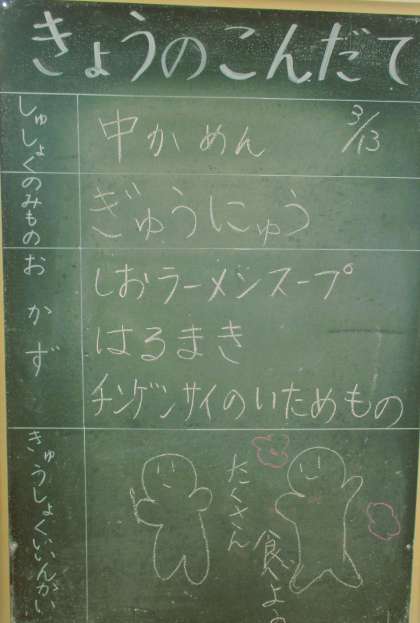 きょうのこんだて
しゅしょく
中かめん
3/13
のみもの
ぎゅうにゅう
おかず
しおラーメンスープ
はるまき
チンゲンサイのいためもの
きゅうしょくいいんかい
たくさん
食べよう